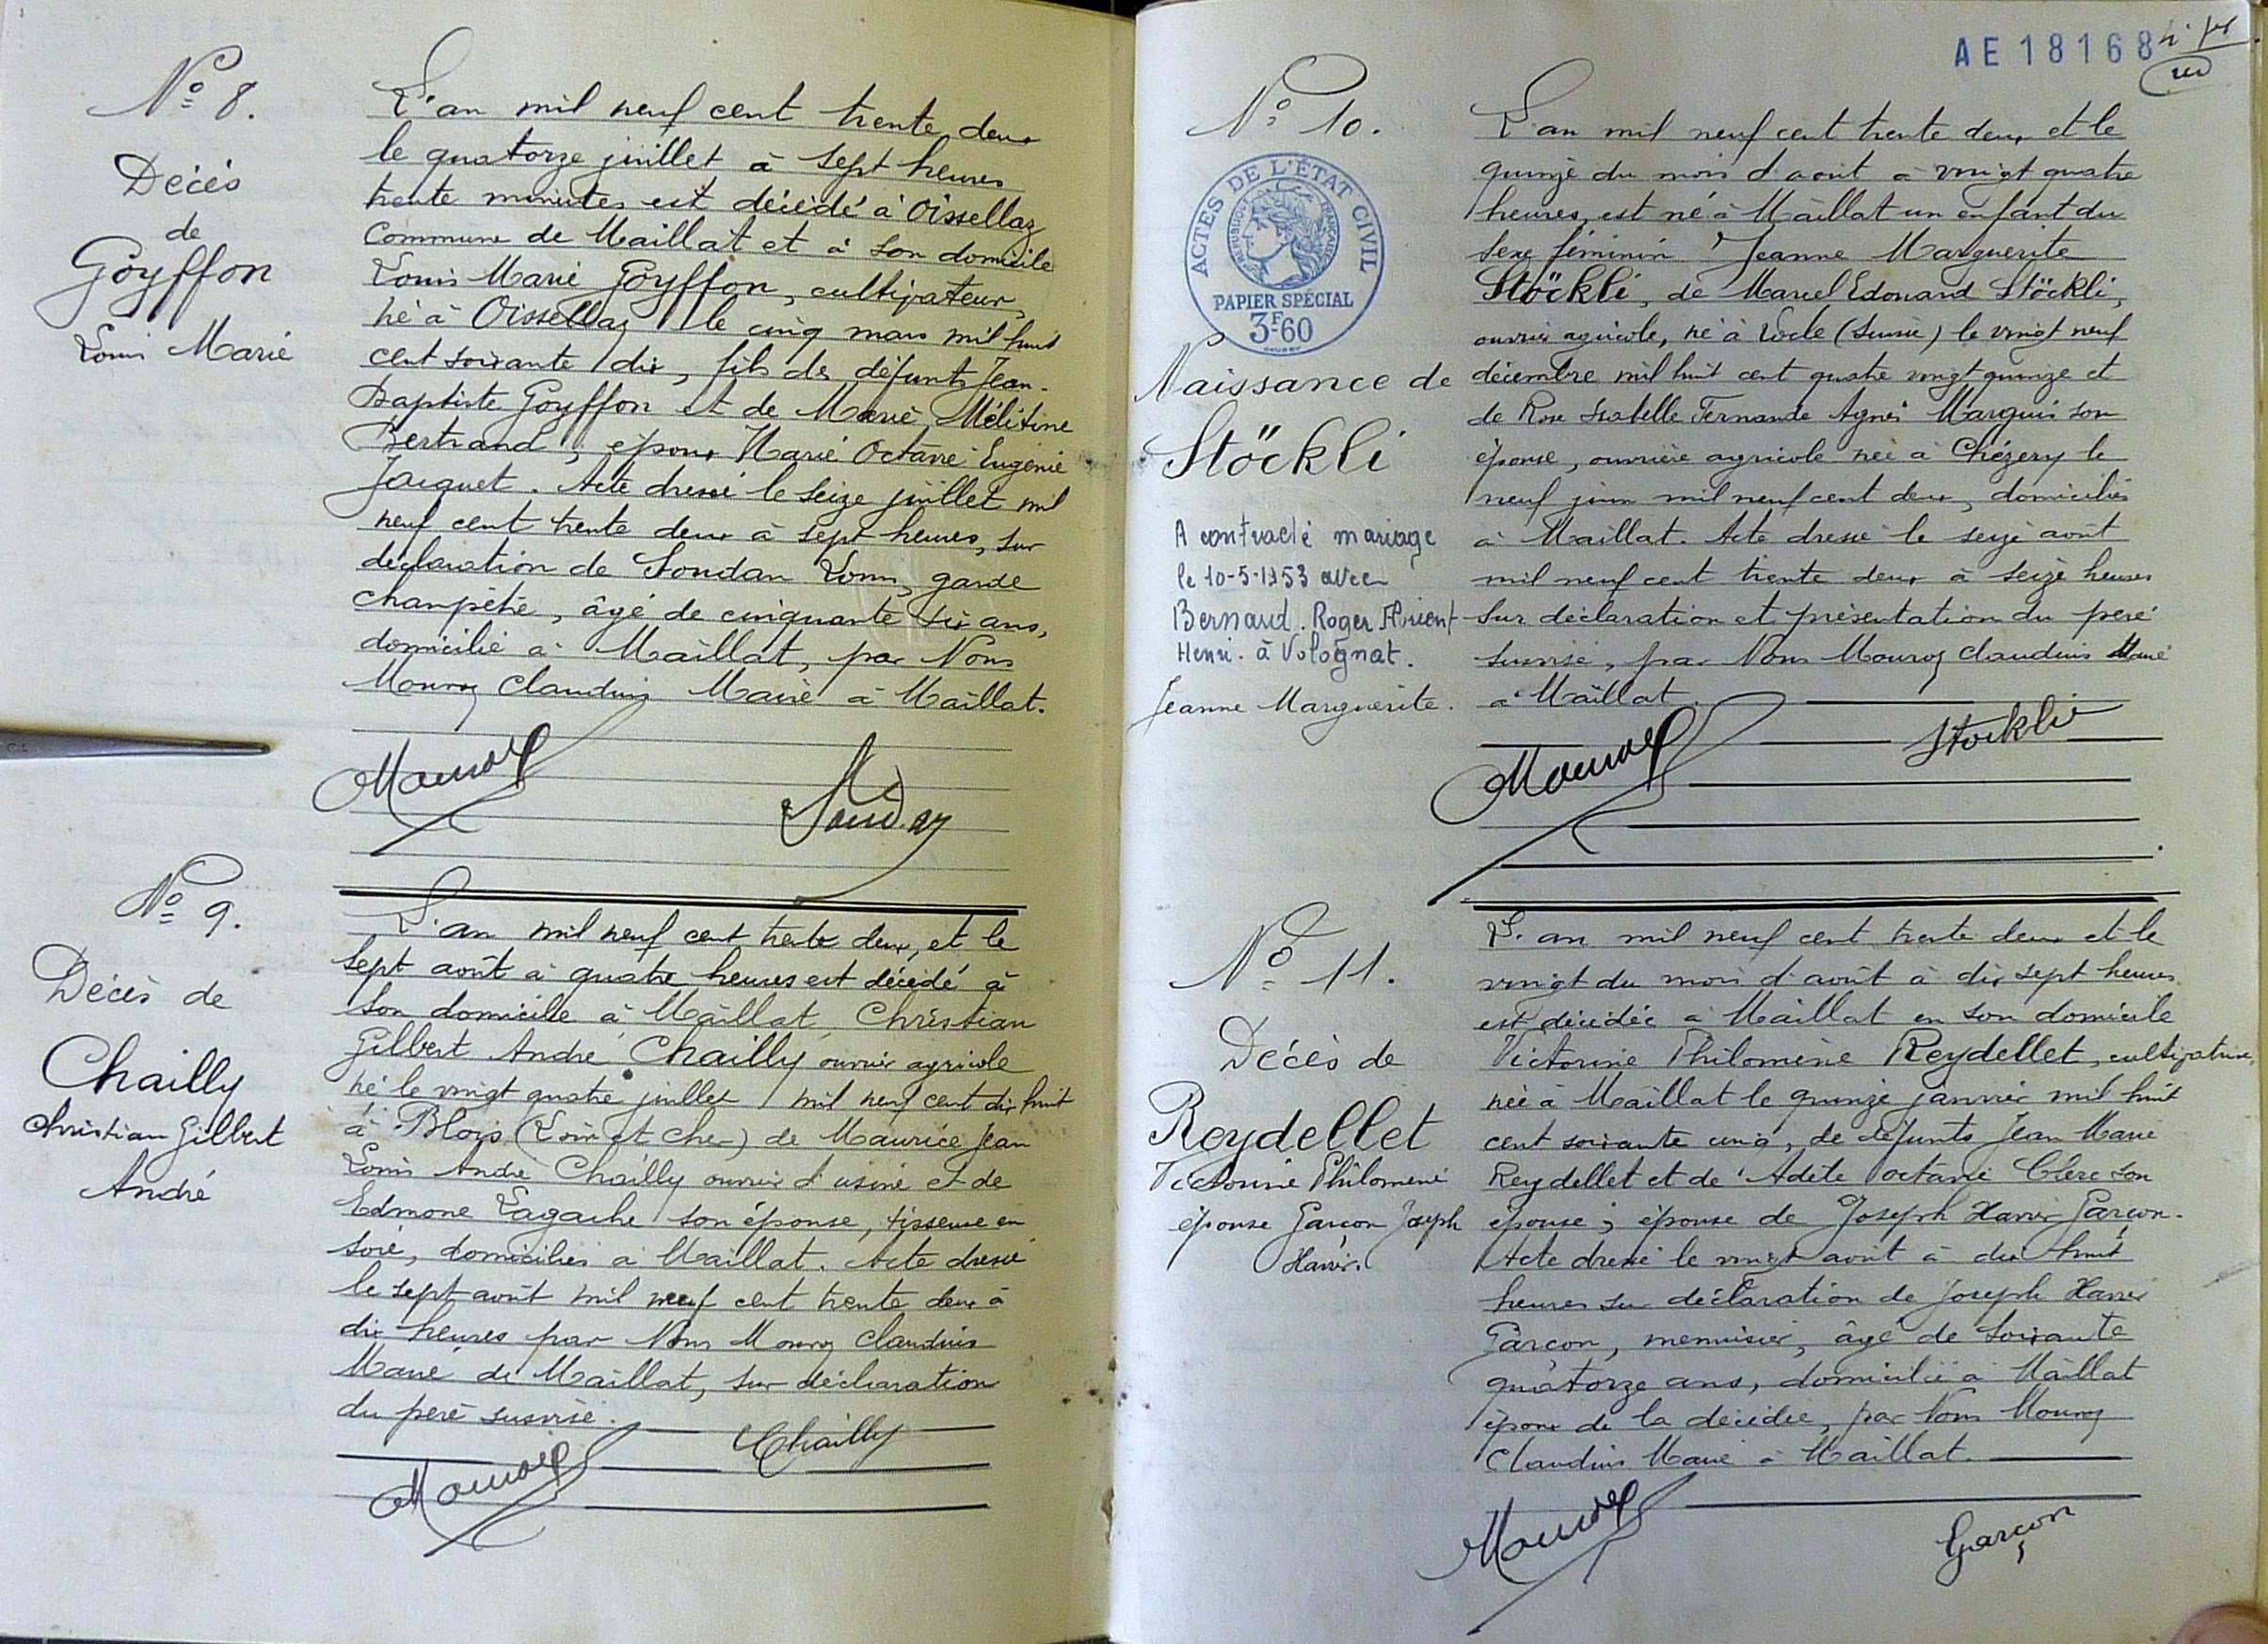 N° 8.
Décès
de
Goyffon
Louis Marie
L'an mil neuf cent trente deux
le quatorze juillet à sept heures
trente minutes est décédé à Oissellaz
commune de Maillat et à son domicile
Louis Marie Goyffon, cultivateur,
né à Oissellaz le cinq mars mil huit
cent soixante dix, fils de défunts Jean-
Baptiste Goyffon et de Marie Mélitine
Bertrand, époux Marie Octavie Eugénie
Jacquet. Acte dressé le seize juillet mil
neuf cent trente deux à sept heures, sur
déclaration de Soudan Louis, garde
champêtre, âgé de cinquante six ans,
domicilié à Maillat, par Nous
Mouroz Claudius Maire à Maillat.
Mouroz
Soudan
N° 9.
Décès de
Chailly
Christian Gilbert
André
L'an mil neuf cent trente deux, et le
sept août à quatre heures est décédé à
son domicile à Maillat, Christian
Gilbert André Chailly ouvrier agricole
né le vingt quatre juillet mil neuf cent dix huit
à Blois (Loir et Cher) de Maurice Jean
Louis André Chailly ouvrier d'usine et de
Edmone Lagache son épouse, tisseuse en
soie, domiciliés à Maillat. Acte dressé
le sept août mil neuf cent trente deux à
dix heures par Nous Mouroz Claudius
Maire de Maillat, sur déclaration
du père susvisé.
Chailly
Mouroz
AE 18168
N° 10.
ACTES DE L'ÉTAT CIVIL
RÉPUBLIQUE FRANÇAISE
PAPIER SPÉCIAL
3F60
Naissance de
Stöckli
A contracté mariage
le 10-5-1953 avec
Bernard. Roger Florent
Henri. à Volognat.
Jeanne Marguerite.
L'an mil neuf cent trente deux et le
quinze du mois d'août à vingt quatre
heures, est né à Maillat un enfant du
sexe féminin Jeanne Marguerite
Stöckli, de Marcel Edouard Stöckli,
ouvrier agricole, né à Locle (Suisse) le vingt neuf
décembre mil huit cent quatre vingt quinze et
de Rose Isabelle Fernande Agnès Marquis son
épouse, ouvrière agricole née à Chézery le
neuf juin mil neuf cent deux, domiciliés
à Maillat. Acte dressé le seize août
mil neuf cent trente deux à seize heures
sur déclaration et présentation du père
susvisé, par Nous Mouroz Claudius Maire
à Maillat.
Stockli
Mouroz
N° 11.
Décès de
Reydellet
Victorine Philomène
épouse Garçon Joseph
Xavier.
L'an mil neuf cent trente deux et le
vingt du mois d'août à dix sept heures
est décédée à Maillat en son domicile
Victorine Philomène Reydellet, cultivatrice,
née à Maillat le quinze janvier mil huit
cent soixante cinq, de défunts Jean Marie
Reydellet et de Adèle Octavie Clerc son
épouse; épouse de Joseph Xavier Garçon.
Acte dressé le vingt août à dix huit
heures sur déclaration de Joseph Xavier
Garçon, menuisier, âgé de soixante
quatorze ans, domicilié à Maillat
époux de la décédée, par Nous Mouroz
Claudius Maire à Maillat.
Mouroz
Garçon